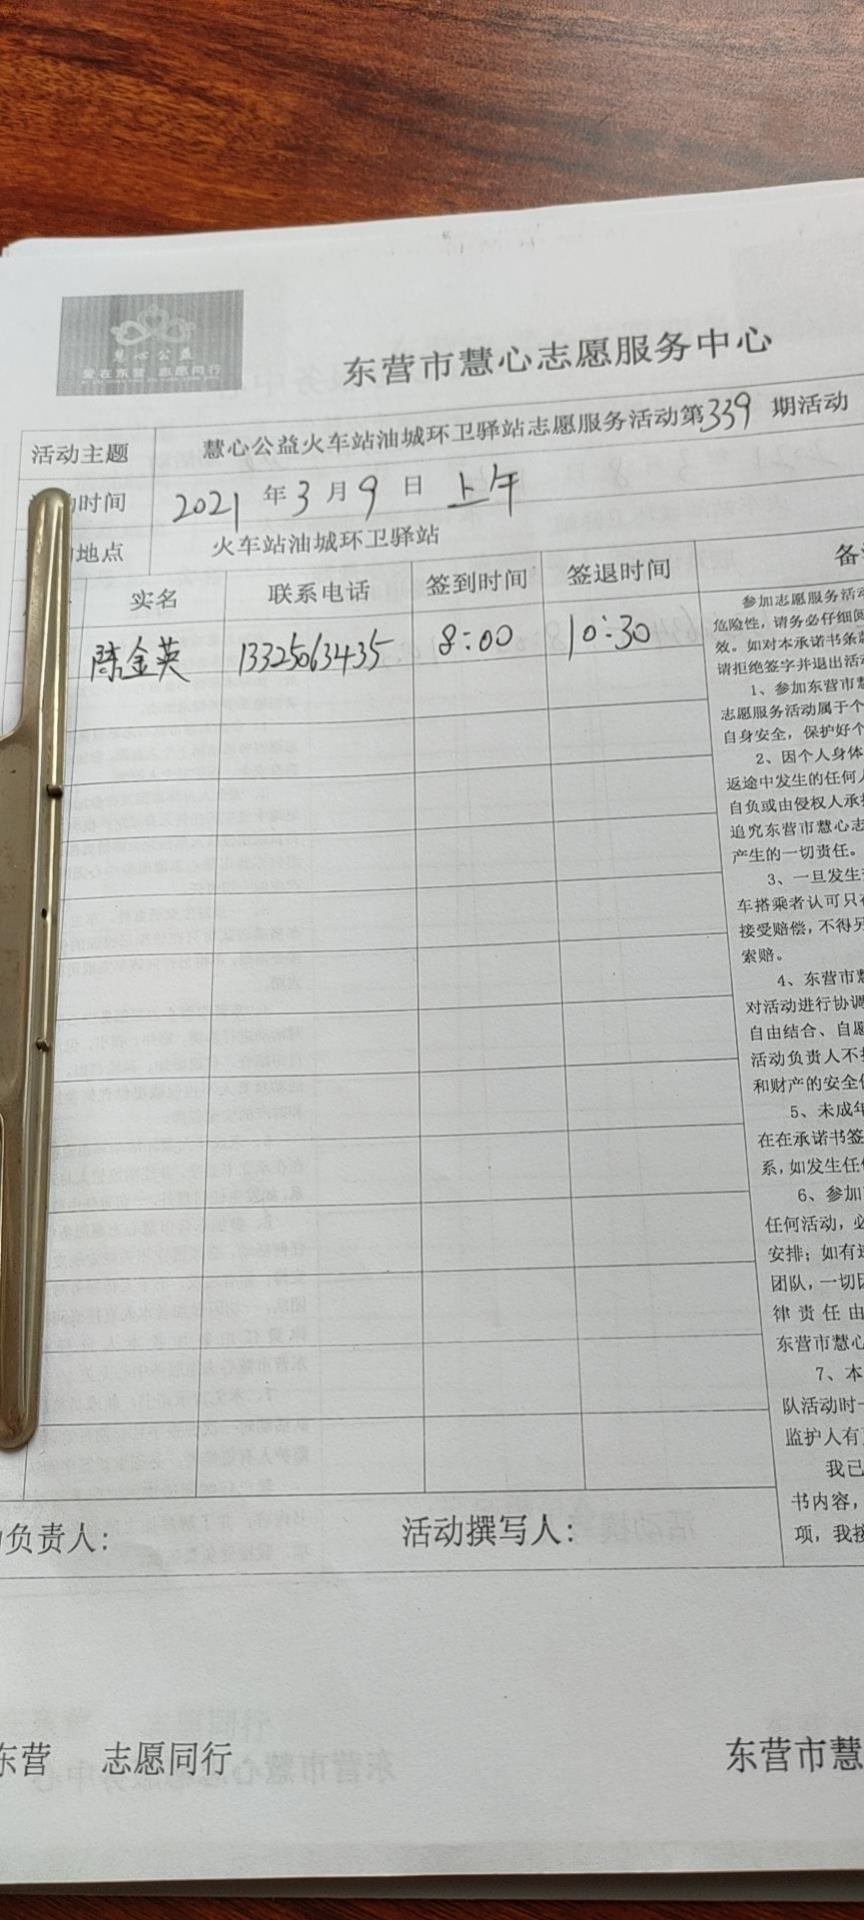 慧心公益
爱在东营 志愿同行
东营市慧心志愿服务中心
活动主题 慧心公益火车站油城环卫驿站志愿服务活动第339期活动
动时间 2021年3月9日 上午
地点 火车站油城环卫驿站
实名 联系电话 签到时间 签退时间 备
陈金英 13325063435 8:00 10:30
参加志愿服务活动
危险性，请务必仔细阅
效。如对本承诺书条款
请拒绝签字并退出活动
1、参加东营市慧
志愿服务活动属于个
自身安全，保护好个
2、因个人身体
返途中发生的任何人
自负或由侵权人承担
追究东营市慧心志
产生的一切责任。
3、一旦发生
车搭乘者认可只在
接受赔偿，不得另
索赔。
4、东营市慧
对活动进行协调
自由结合、自愿
活动负责人不
和财产的安全
5、未成年
在在承诺书签
系，如发生任何
6、参加
任何活动，必
安排；如有
团队，一切因
律责任由
东营市慧心
7、本
队活动时一
监护人有
我已
书内容，
项，我接
负责人： 活动撰写人：
东营 志愿同行 东营市慧